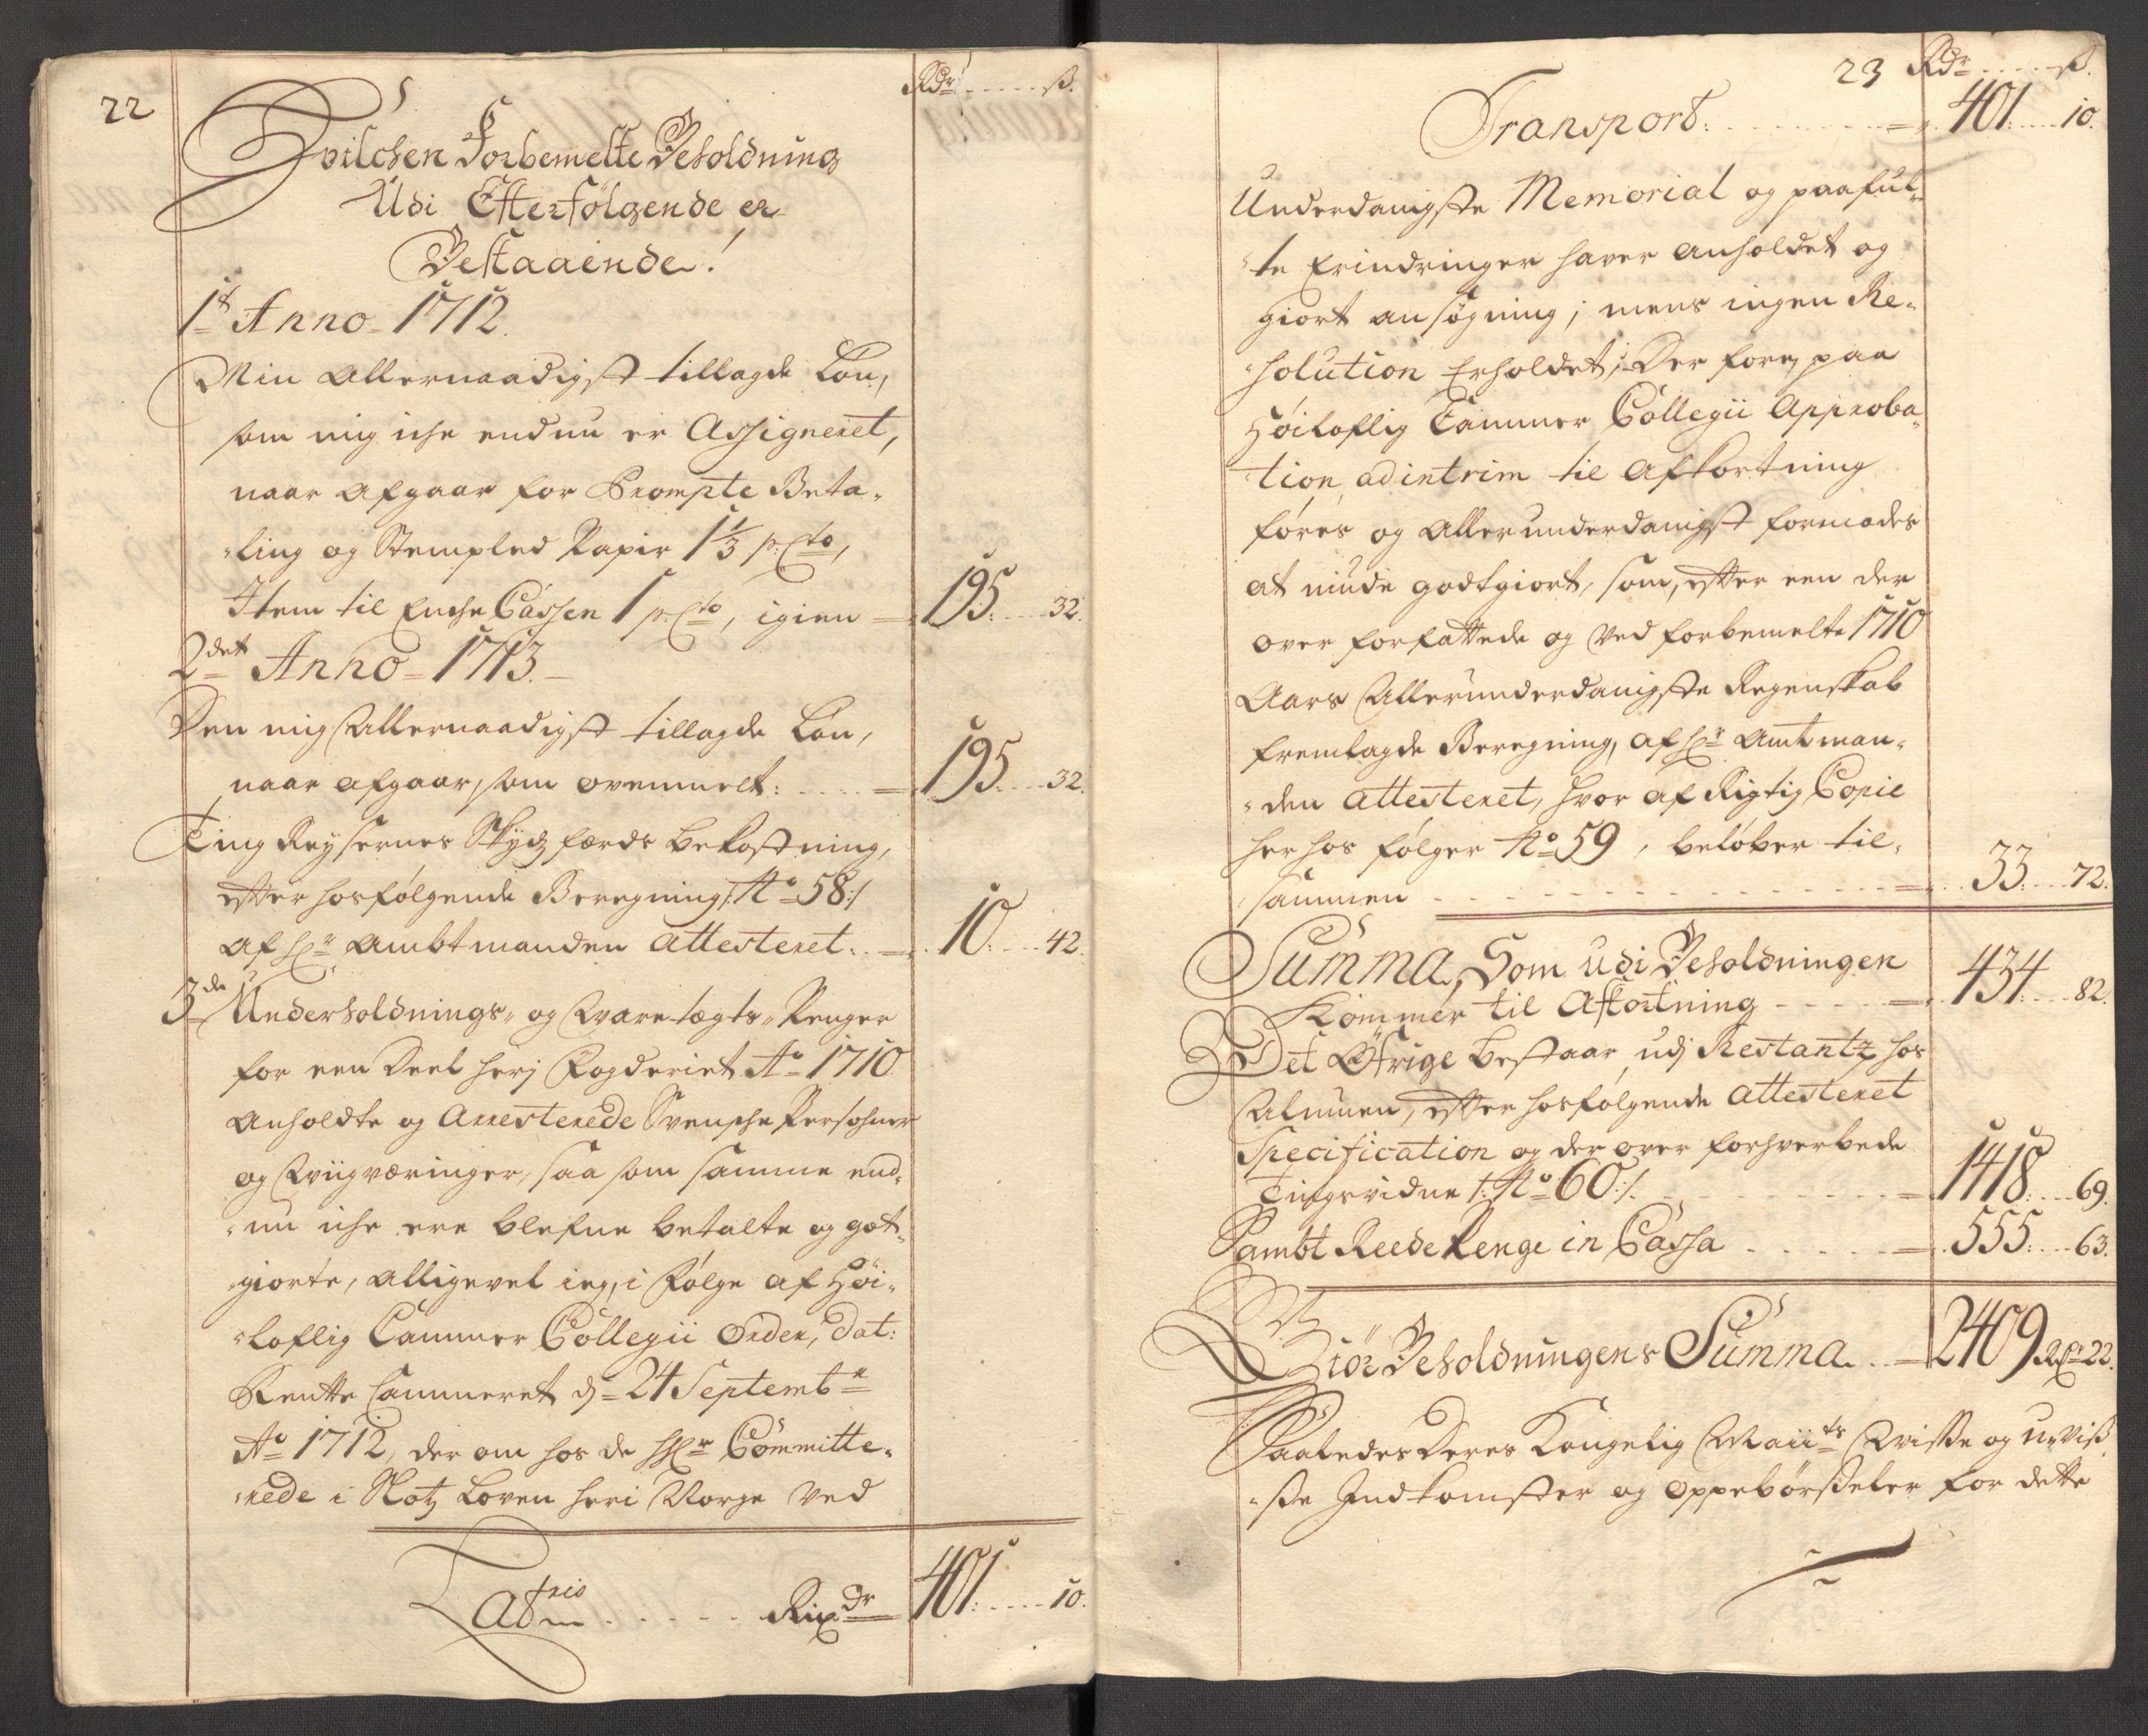 22
Rdr ß.
Hvilchen Forbemelte Beholdning
Udi Efterfölgende er
Bestaaende!
1t Anno 1712.
Min Allernaadigst tillagde Løn,
som mig iche endnu er Assigneret,
naar afgaar for Prompte Beta-
ling og Stempled Papir 1 1/3 p:Cto,
Item til Enche Cassen 1 p:Cto, igien = 195: 32.
2det Anno 1713.
Den mig Allernaadigst tillagde Løn,
naar afgaar, som ovenmelt: = 195: 32.
Ting Reysernes Skydz færds bekostning,
efter hosfølgende Beregning /: No 58 :/
af Hr Ambtmanden Attesteret: = 10: 42.
3de Underholdnings- og Varetægts-Penger
for een Deel herj Fogderiet Ao 1710
anholdte og Arresterede Svenske Persohner
og Viigværinger, saa som samme end-
nu iche ere blefne betalte og got-
giorte, alligevel ieg, i Følge af Høi-
loflig Cammer Collegii Order, dat:
Rentte Cammeret d= 24 Septembr
Ao 1712, der om hos de HHr Committe-
rede i Slotz Loven heri Norge ved
Latris Rixdr 401: 10.
23
Rdr ß.
Transport: = 401: 10.
Underdanigste Memorial og paaful-
te Erindringer haver anholdet og
giort ansøgning; mens ingen Re-
solution Erholdet; Der fore, paa
Høiloflig Cammer Collegii Approba-
tion, ad intrim til Afkortning
føres og Allerunderdanigst formodes
at niude godtgiort, som, efter een der
over forfattede og ved forbemelte 1710
Aars Allerunderdanigste Regenskab
fremlagde Beregning, af Hr Amtman-
den Attesteret, hvor af Rigtig Copie
her hos følger No 59, beløber til-
sammen = 33: 72.
Summa, Som udi Beholdningen
Kommer til Afkortning = 434: 82.
Det Öfrige bestaar udj Restantz hos
Almuen, efter hosfølgende Attesteret
Specification og der over forhverbede
Tingsvidne /: No 60 :/ = 1418: 69.
Sambt Reede Penge in Cassa = 555: 63.
Giör Beholdningens Summa = 2409 Rdr 22.
Saaledes Deres Kongelig Maiits Visse og u-viß-
se Indkomster og oppebørßeler for dette